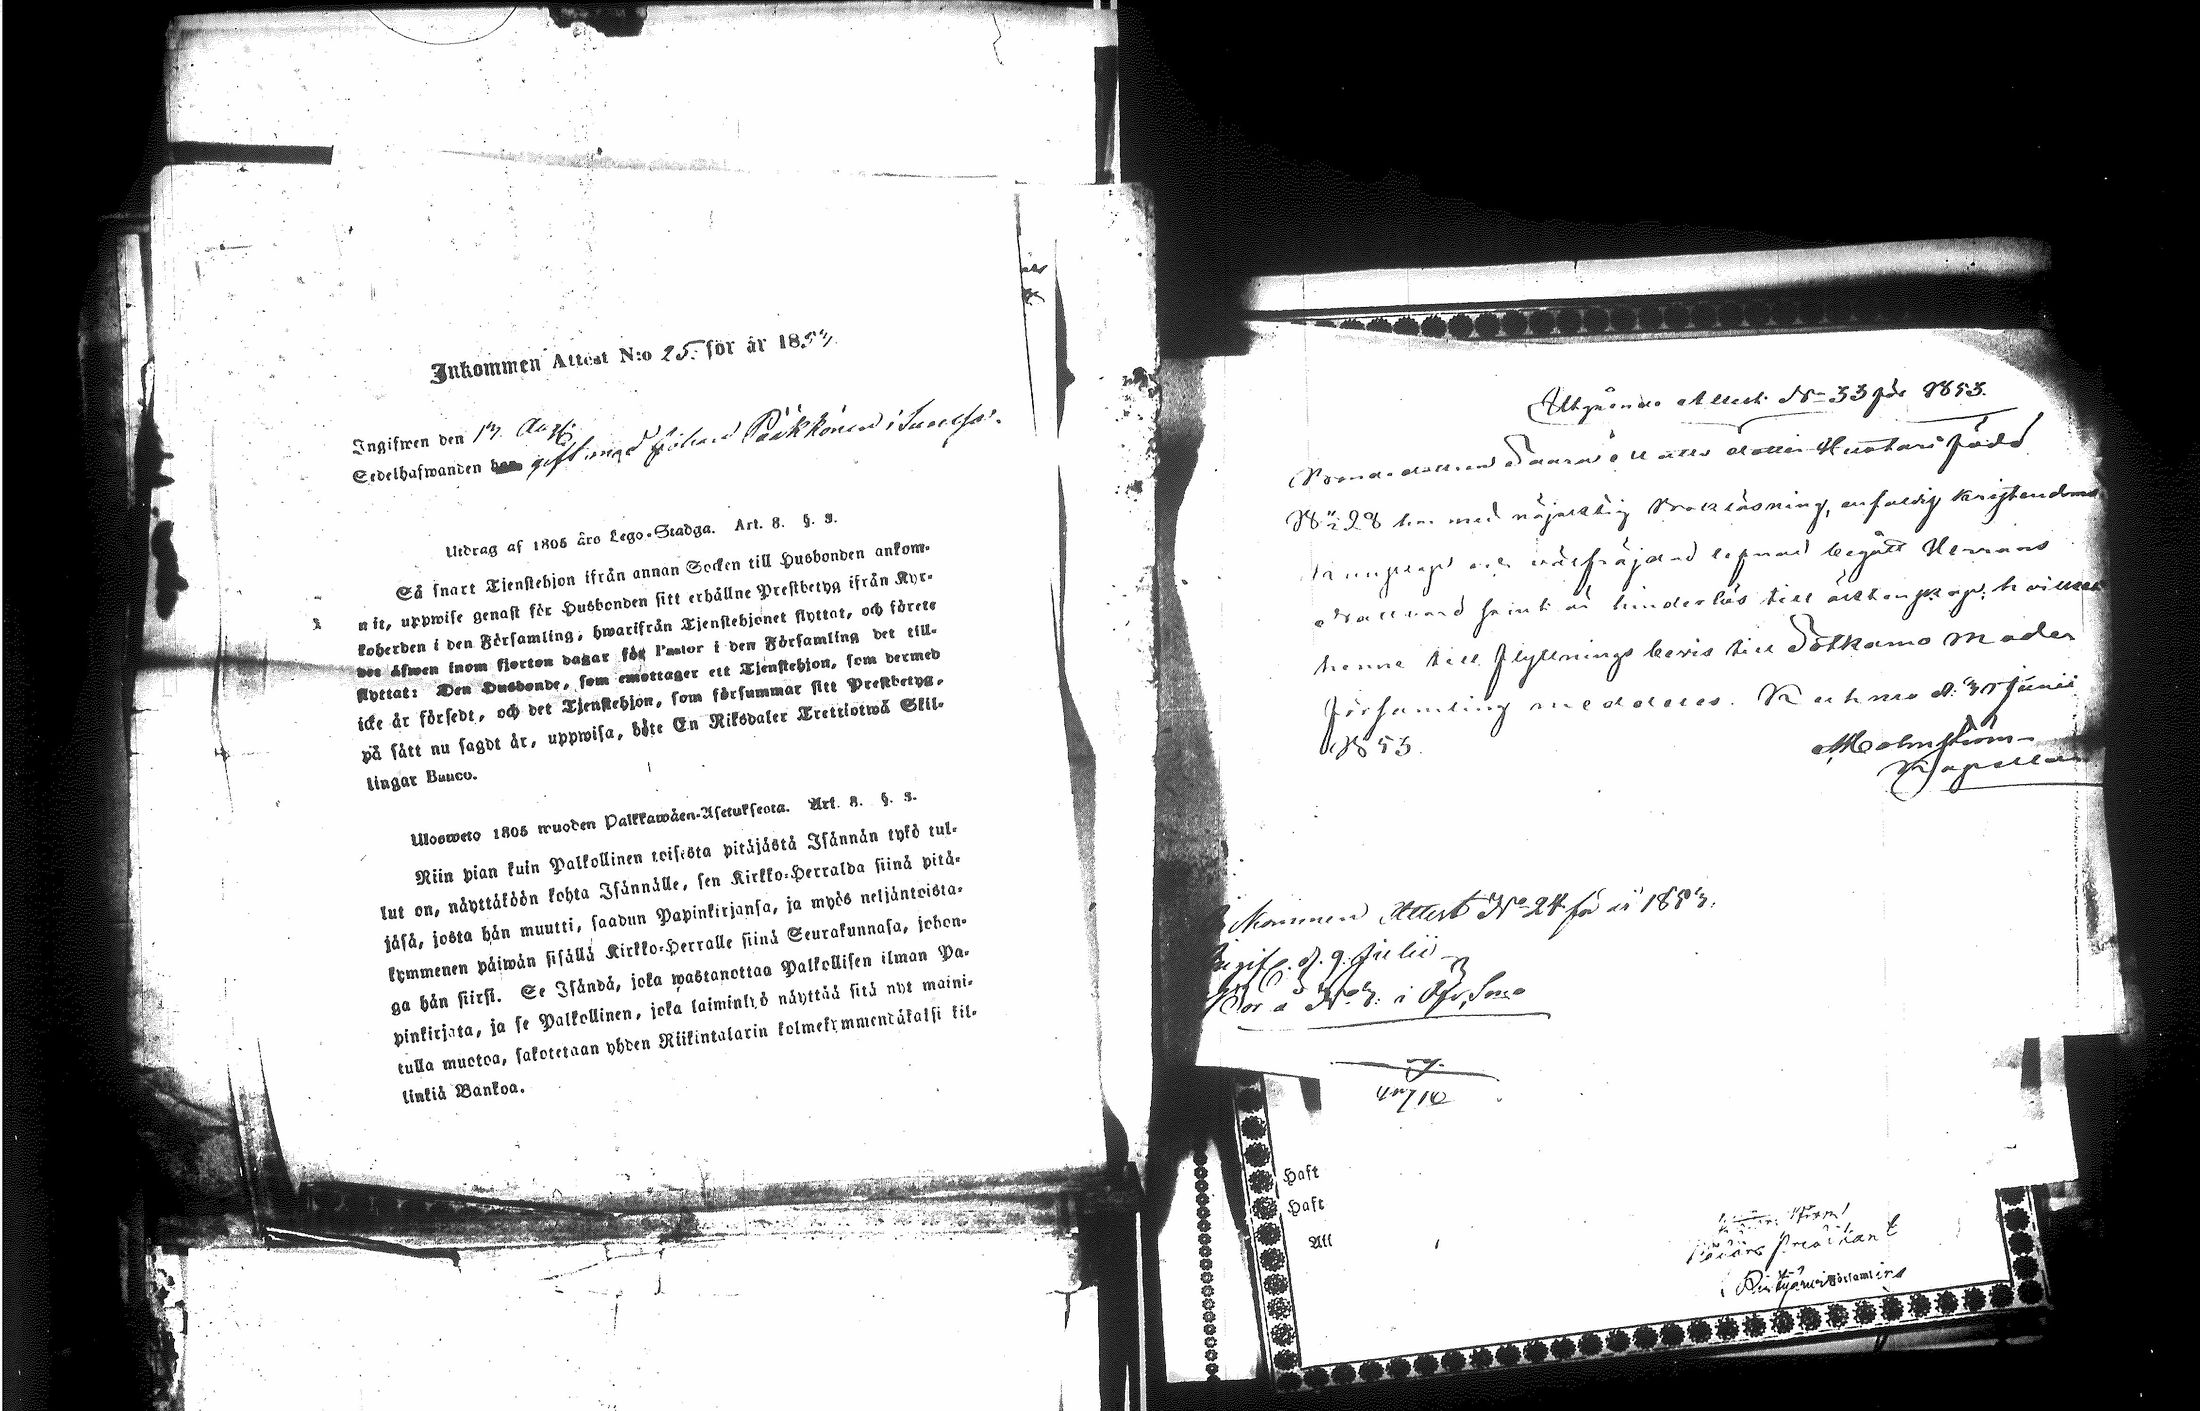 Inkommen Attest N:o 25. för år 1853.
Ingifwen den 13 Aug.
Sedelhafwanden gift med Johan Pääkkönen i
Utdrag af 1805 års Lego-Stadga. Art. 8. §. 3.
Så snart Tjenstehjon ifrån annan Socken till Husbonden ankom-
nit, uppwise genast för Husbonden sitt erhållne Prestbetyg ifrån Kyr-
koherden i den Församling, hwarifrån Tjenstehjonet flyttat, och förete
det äfwen inom fjorton dagar för Pastor i den Församling det till-
flyttat: Den Husbonde, som emottager ett Tjenstehjon, som dermed
icke är försedt, och det Tjenstehjon, som försummar sitt Prestbetyg,
på sätt nu sagdt är, uppwisa, böte En Riksdaler Trettiotwå Skil-
lingar Banco.
Ulosweto 1805 wuoden Palkkawäen-Asetuksesta. Art. 8. §. 3.
Niin pian kuin Palkollinen toisesta pitäjästä Isännän tykö tul-
lut on, näyttäköön kohta Isännälle, sen Kirkko-Herralda siinä pitä-
jäsä, josta hän muutti, saadun Papinkirjansa, ja myös neljäntoista-
kymmenen päiwän sisällä Kirkko-Herralle siinä Seurakunnasa, johon-
ga hän siirsi. Se Isändä, joka wastanottaa Palkollisen ilman Pa-
pinkirjata, ja se Palkollinen, joka laiminlyö näyttää sitä nyt maini-
tulla muotoa, sakotetaan yhden Riikintalarin kolmekymmendäkaksi kil-
linkiä Bankoa.
Utgående Attest No 33 för 1853.
Bondedottren Saara Matts dotter Huotari född
18 28 har med nöjaktig Bokläsning, enfaldig kristendoms
kunskap och välfräjdad lefnad begått Herrans
Nattvard samt är hinderlös till äktenskap; hvilket
henne till flyttnings bevis till Sotkamo Moder
församling meddeles. Kuhmo d. 30 Junii
1853.
Malmström
Kapellan
Inkommen Attest No 24 för år 1853.
Ingif. d. 9 Julii
Bor å No 3. i
Haft
Haft
All
Predikant
Församlings